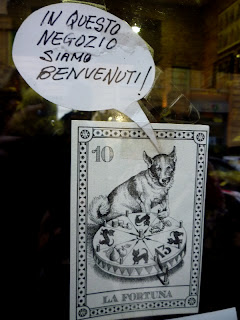 IN QUESTO
NEGOZIO
SIAMO
BENVENUTI!
10
13
LA FORTUNA